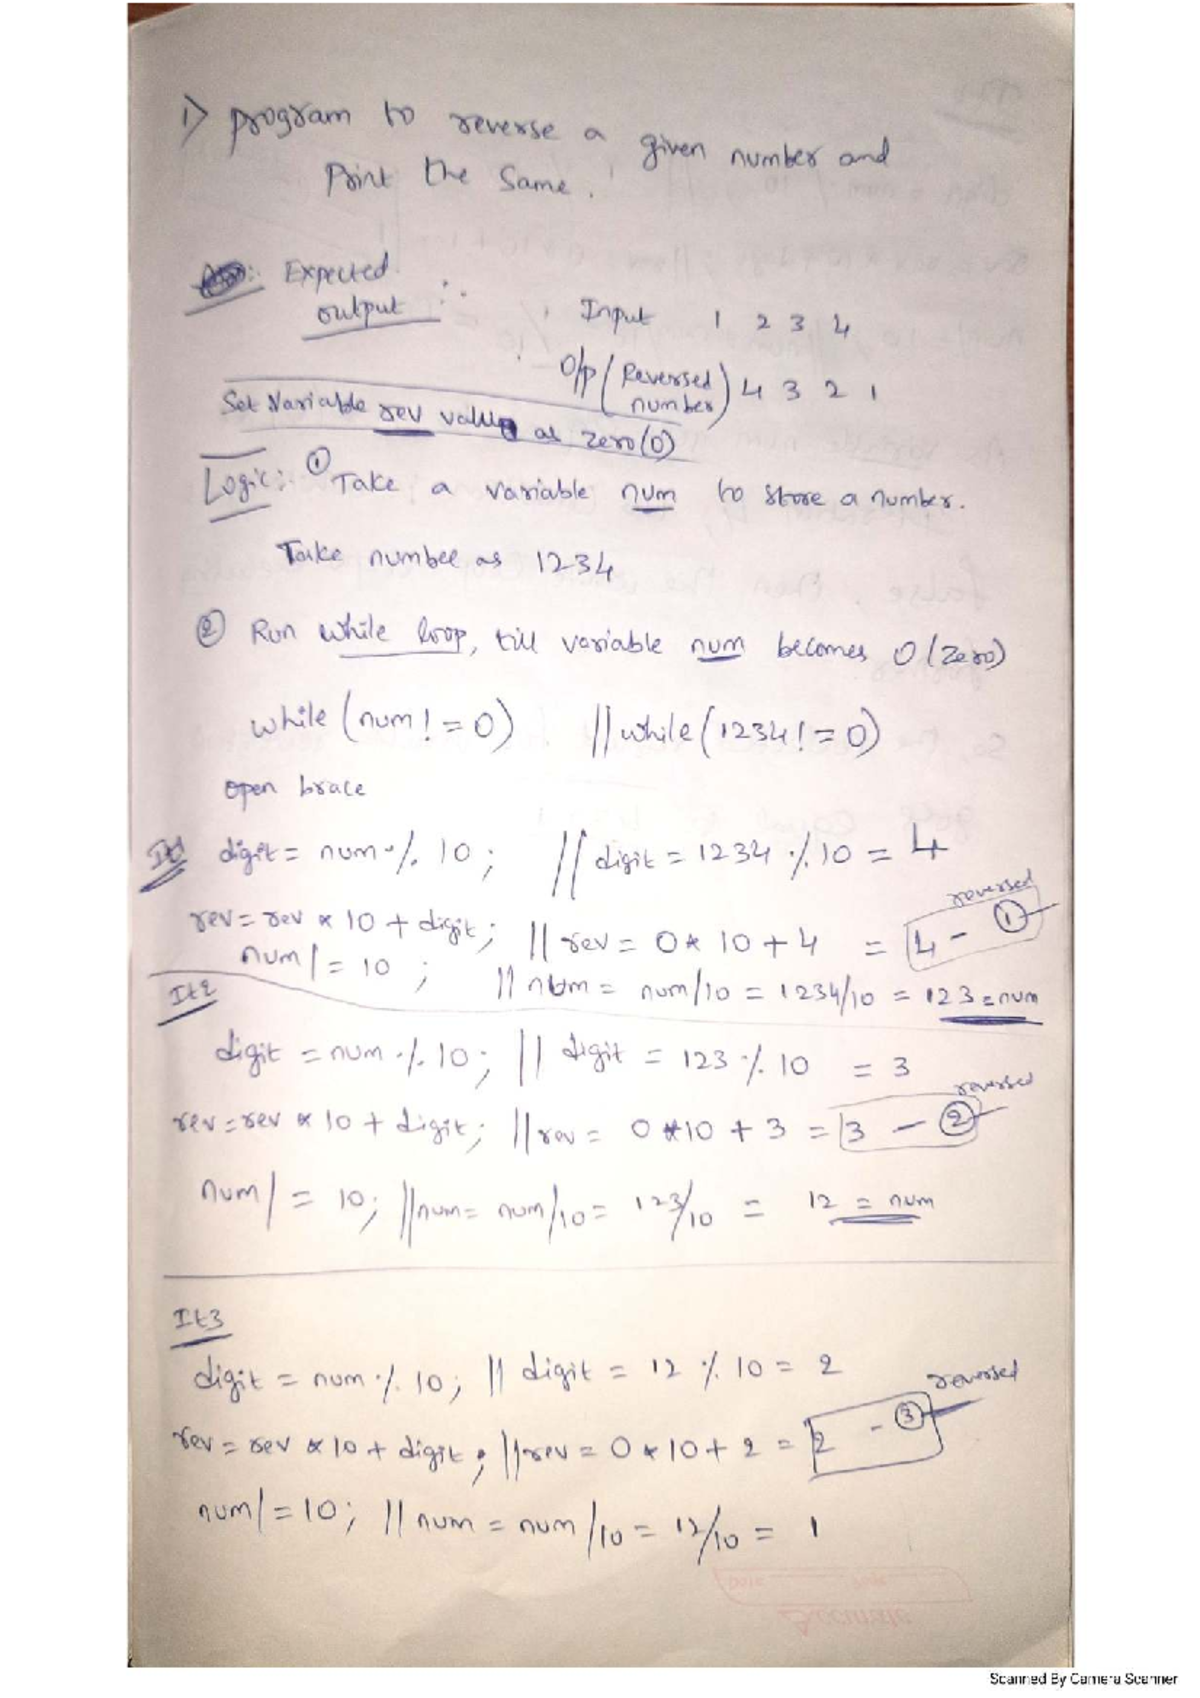 1) program to reverse a given number and
Print the Same.
Expected
output :
Input 1 2 3 4
O/p (Reversed number) 4 3 2 1
Set Variable rev value as zero(0)
Logic: ① Take a variable num to store a number.
Take number as 1234
② Run while loop, till variable num becomes 0 (zero)
while (num != 0) // while (1234 != 0)
open brace
It1 digit = num % 10 ; // digit = 1234 % 10 = 4
reversed
rev = rev * 10 + digit; // rev = 0 * 10 + 4 = 4 - ①
num /= 10 ; // num = num/10 = 1234/10 = 123 = num
It2
digit = num % 10; // digit = 123 % 10 = 3
reversed
rev = rev * 10 + digit; // rev = 0 * 10 + 3 = 3 - ②
num /= 10; // num = num/10 = 123/10 = 12 = num
It3
digit = num % 10; // digit = 12 % 10 = 2
reversed
rev = rev * 10 + digit; // rev = 0 * 10 + 2 = 2 - ③
num /= 10; // num = num /10 = 12/10 = 1
Scanned By Camera Scanner